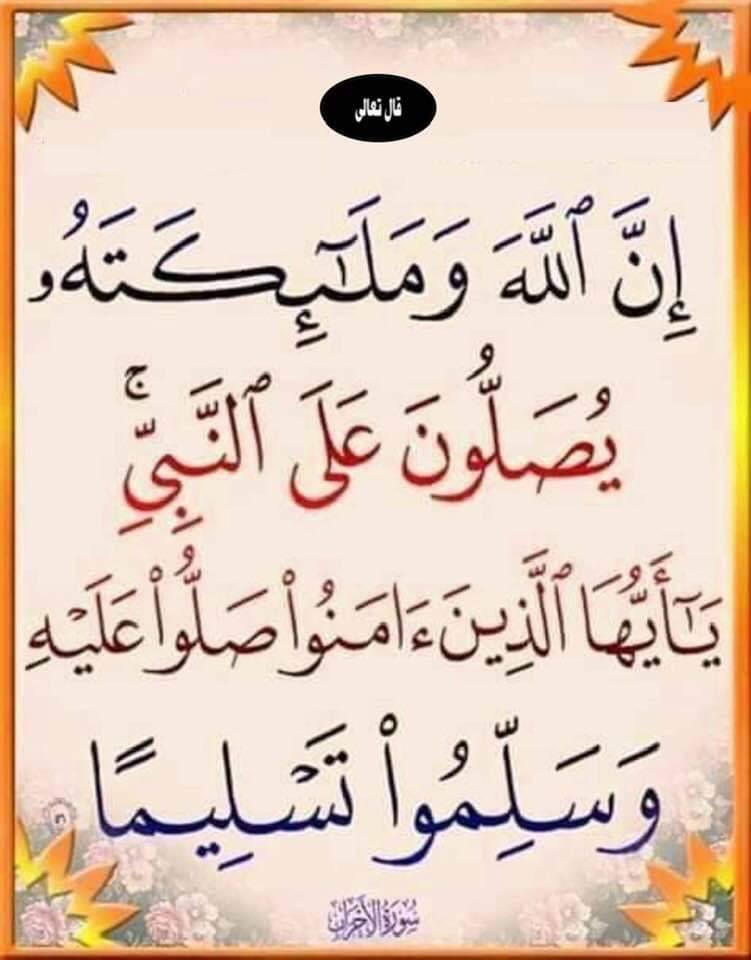 قال تعالى
إِنَّ ٱللَّهَ وَمَلَٰٓئِكَتَهُۥ
يُصَلُّونَ عَلَى ٱلنَّبِيِّۚ
يَٰٓأَيُّهَا ٱلَّذِينَ ءَامَنُوا۟ صَلُّوا۟ عَلَيْهِ
وَسَلِّمُوا۟ تَسْلِيمًا
سورة الأحزاب